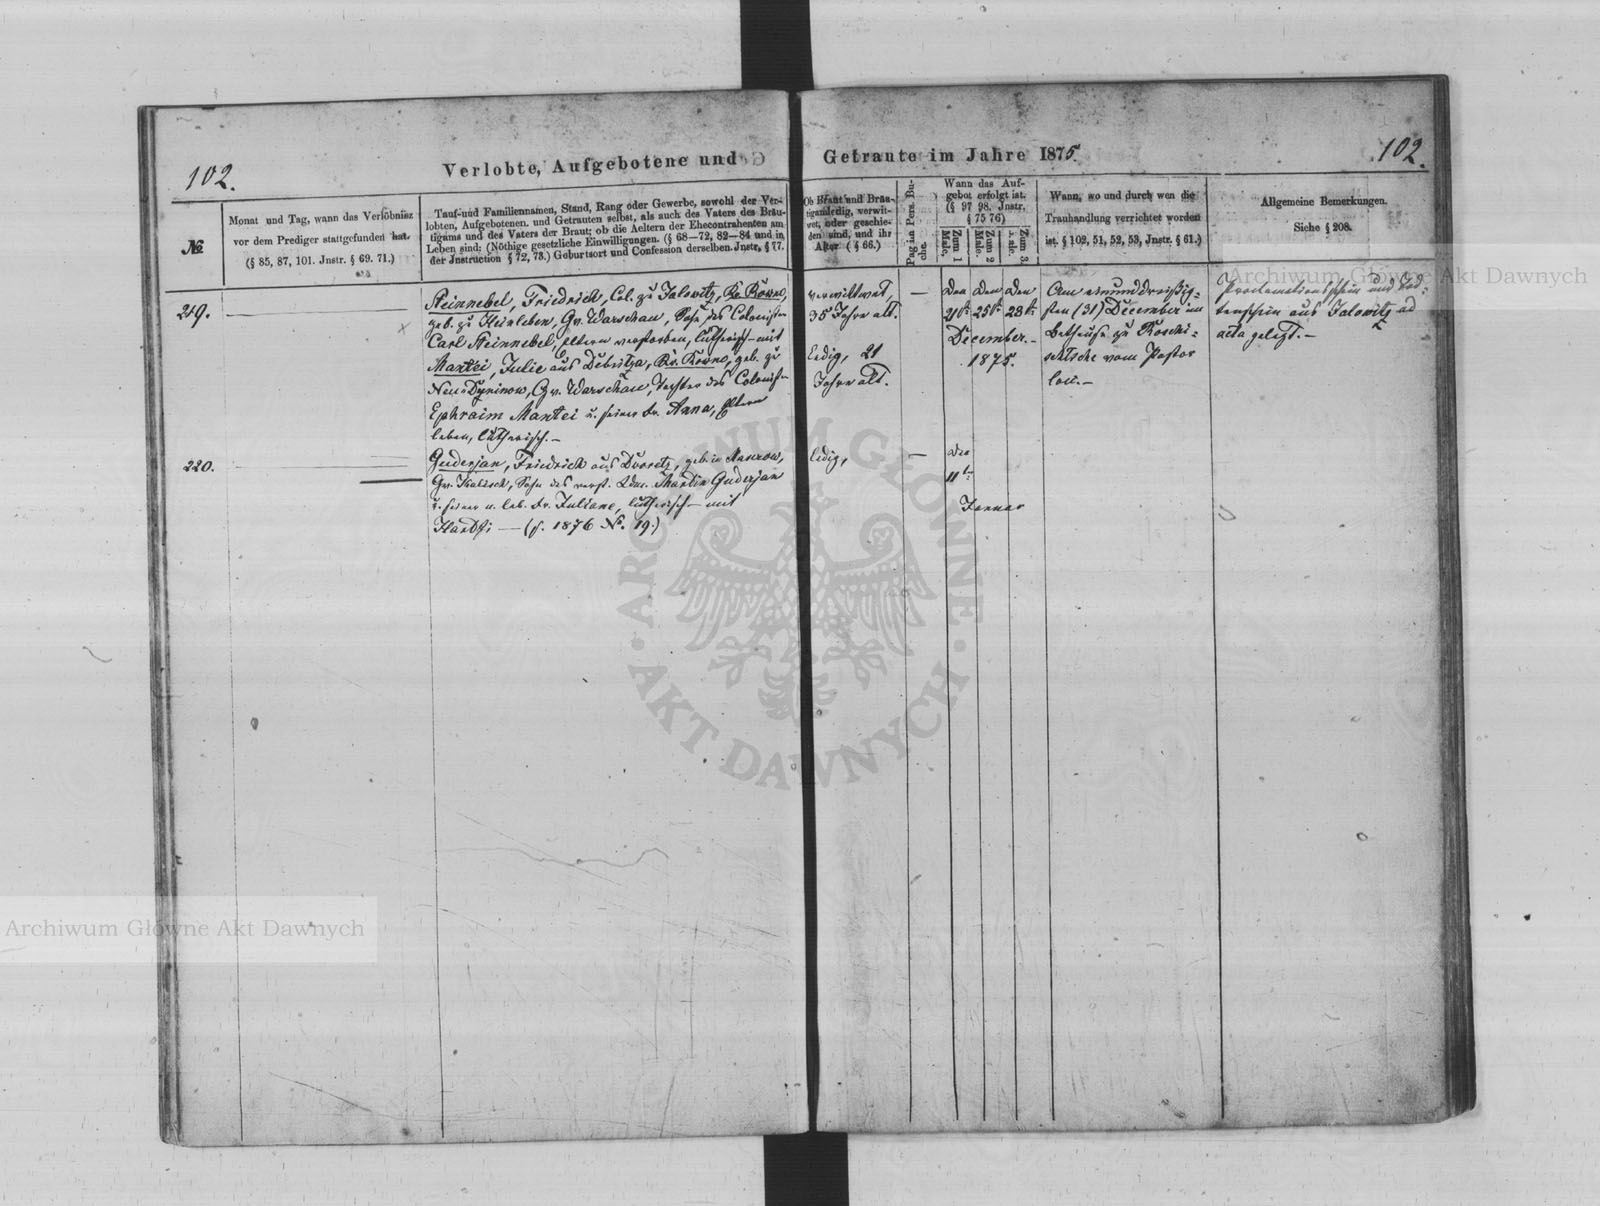 102.
Verlobte, Aufgebotene und
Getraute im Jahre 1875.
102.
№
Monat und Tag, wann das Verlöbnisz
vor dem Prediger stattgefunden hat.
(§ 85, 87, 101. Jnstr. § 69. 71.)
Tauf-und Familiennamen, Stand, Rang oder Gewerbe, sowohl der Ver-
lobten, Aufgebotenen. und Getrauten selbst, als auch des Vaters des Bräu-
tigams und des Vaters der Braut; ob die Aeltern der Ehecontrahenten am
Leben sind: (Nöthige gesetzliche Einwilligungen. (§ 68—72, 82—84 und in
der Jnstruction § 72, 73.) Geburtsort und Confession derselben. Jnstr, § 77.
Ob Braut und Bräu-
tigam ledig, verwit-
wet, oder geschie-
den sind, und ihr
Alter (§ 66.)
Pag in Pers. Bu-
che
Wann das Auf-
gebot erfolgt ist.
(§ 97 98. Jnstr.
§ 75 76)
Zum 1 Mal.
Zum 2 Mal.
Zum 3.
Wann, wo und durch wen die
Trauhandlung verrichtet worden
ist. § 102, 51, 52, 53, Jnstr. § 61.)
Allgemeine Bemerkungen.
Siehe § 208.
219.
Steinnebel, Friedrich, Col. zu Jalowitz, Kr. Rowno,
geb. zu Steinleben, Gv. Warschau, Sohn des Colonist-
Carl Steinnebel, Eltern verstorben, lutherisch – mit
Mantei, Julie aus Kr. Rowno, geb. zu
Neu- Gv. Warschau, Tochter des Colonist-
Ephraim Mantei u. seiner Fr. Anna, Eltern
leben, lutherisch.–
verwittwet,
35 Jahre alt.
ledig, 21
Jahre alt.
—
Den Den Den
21ten 25ten 28ten
December.
1875.
Am einunddreißig-
sten (31) December im
Bethause zu Roschi-
schtsche vom Pastor
loci.–
Proclamationsschein und
aus Jalowitz ad
acta gelegt.–
220.
Guderjan, Friedrich aus Dworetz, geb. in
Gv. Kalisch, Sohn des verst. Martin Guderjan
u. seiner n. leb. Fr. Juliane, lutherisch – mit
— (s. 1876 №. 19.)
ledig,
—
Den
11ten
Januar
Archiwum Główne Akt Dawnych
Archiwum Główne Akt Dawnych
ARCHIWUM GŁÓWNE · AKT DAWNYCH ·